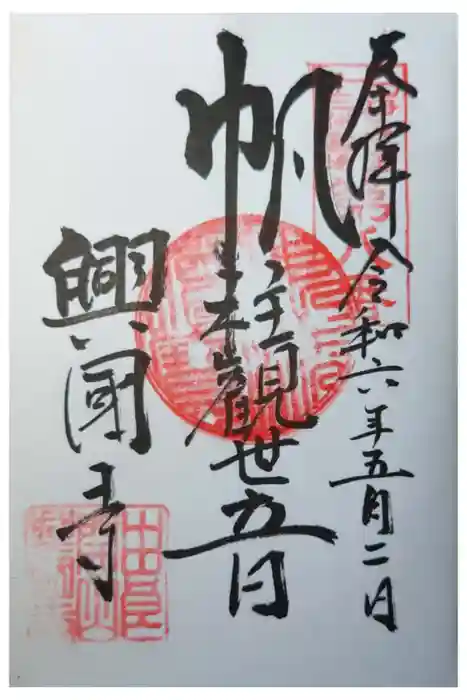 奉拝 令和六年五月二日
帆柱觀世音
興國寺